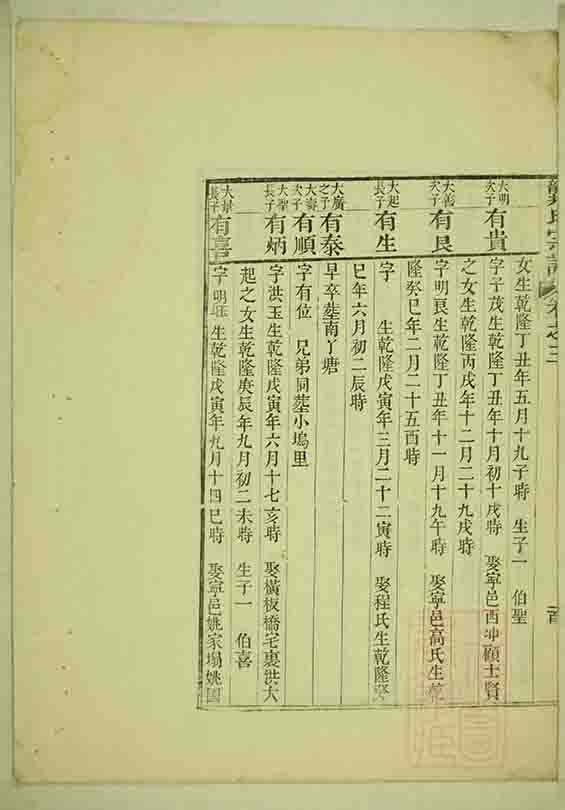 氏宗譜 卷之三
女生乾隆丁丑年五月十九子時 生子一 伯聖
大明次子 有貴 字子茂生乾隆丁丑年十月初十戌時 娶寧邑西冲顧士賢
之女生乾隆丙戌年十二月二十九戌時
大善次子 有良 字明良生乾隆丁丑年十一月十九午時 娶寧邑高氏生乾
隆癸巳年二月二十五酉時
大起長子 有生 字 生乾隆戊寅年三月二十二寅時 娶程氏生乾隆癸
巳年六月初二辰時
大廣之子 有泰 早卒塟南丫塘
大壽次子 有順 字有位 兄弟同塟小塢里
大聖長子 有炳 字洪玉生乾隆戊寅年六月十七亥時 娶橫板橋宅裏洪大
起之女生乾隆庚辰年九月初二未時 生子一 伯喜
長子 有喜 字明 生乾隆戊寅年九月十四巳時 娶寧邑姚家塌姚國